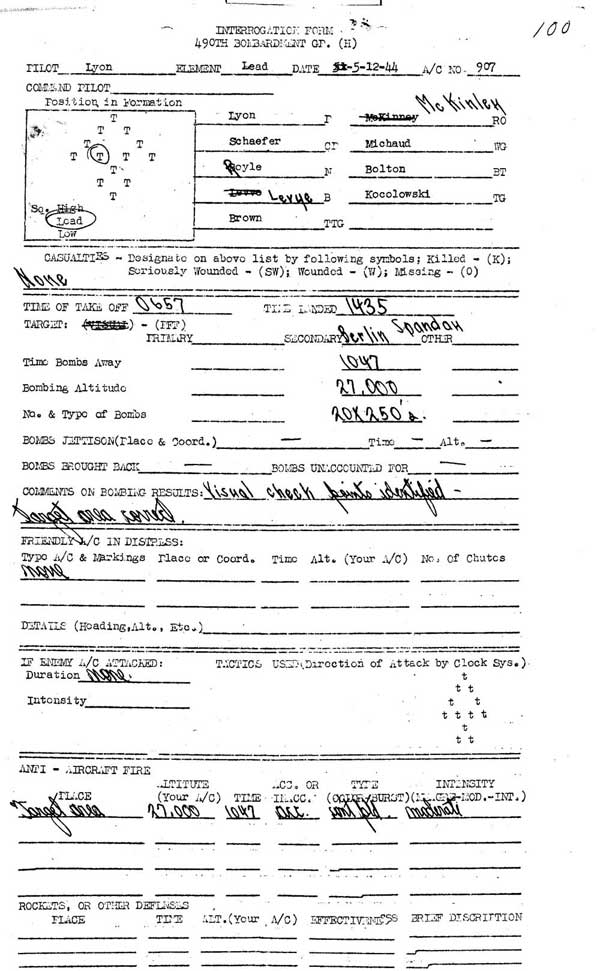 INTERROGATION FORM
490TH BOMBARDMENT GP. (H)
100
PILOT Lyon ELEMENT Lead DATE 5-12-44 A/C NO. 907
COMMAND PILOT
Position in Formation
T
T T
T T
T T T T
T
T T
T
Sq. High
Lead
Low
Lyon P McKinney McKinley RO
Schaefer CP Michaud WG
Royle N Bolton BT
Levye B Kocolowski TG
Brown TTG
CASUALTIES - Designate on above list by following symbols; Killed - (K);
Seriously Wounded - (SW); Wounded - (W); Missing - (O)
None
TIME OF TAKE OFF 0657 TIME LANDED 1435
TARGET: (VISUAL) - (PFF) Berlin Spandau
PRIMARY SECONDARY OTHER
Time Bombs Away 1047
Bombing Altitude 27,000
No. & Type of Bombs 20X250's.
BOMBS JETTISON(Place & Coord.) — Time — Alt. —
BOMBS BROUGHT BACK — BOMBS UNACCOUNTED FOR —
COMMENTS ON BOMBING RESULTS: Visual check points identified -
Target area covered.
FRIENDLY A/C IN DISTRESS:
Type A/C & Markings Place or Coord. Time Alt. (Your A/C) No. Of Chutes
None
DETAILS (Heading,Alt., Etc.)
IF ENEMY A/C ATTACKED: TACTICS USED(Direction of Attack by Clock Sys.)
Duration None.
Intensity
t
t t
t t
t t t t
t
t t
ANTI - AIRCRAFT FIRE
ALTITUTE ACC. OR TYPE INTENSITY
PLACE (Your A/C) TIME INACC. (COLOR/BURST) (MEAGER-MOD.-INT.)
Target area 27,000 1047 acc. moderate
ROCKETS, OR OTHER DEFENSES
PLACE TIME ALT.(Your A/C) EFFECTIVENESS BRIEF DISCRIPTION